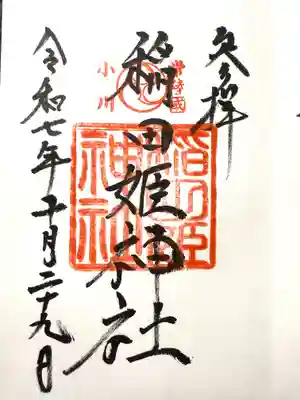 奉拝
常陸國
小川
稲田姫神社
令和七年十月二十九日